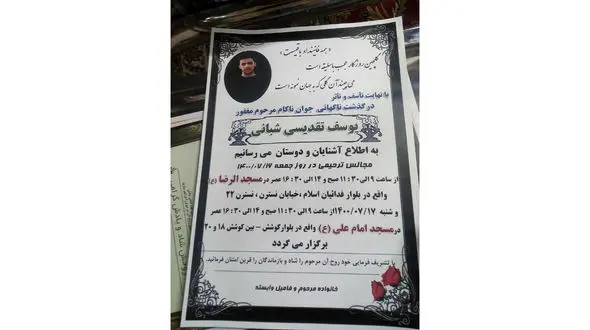 « همه فانیند او باقیست »
گلچین روزگار عجب باسلیقه است
می چیند آن گلی که به جهان نمونه است
با نهایت تاسف و تاثر
درگذشت ناگهانی جوان ناکام مرحوم مغفور
یوسف تقدیسی شبانی
به اطلاع آشنایان و دوستان می رسانیم
مجالس ترحیمی در روز جمعه ۱۴۰۰/۰۷/۱۶
از ساعت ۹ الی ۱۱:۳۰ صبح و ۱۴ الی ۱۶:۳۰ عصر در مسجد الرضا (ع)
واقع در بلوار فدائیان اسلام ،خیابان نسترن ، نسترن ۲۲
و شنبه ۱۴۰۰/۰۷/۱۷از ساعت ۹ الی ۱۱:۳۰ صبح و ۱۴ الی ۱۶:۳۰ عصر
در مسجد امام علی (ع) واقع در بلوار کوشش - بین کوشش ۱۸ و ۲۰
برگزار می گردد
با تشریف فرمایی خود روح آن مرحوم را شاد و بازماندگان را قرین امتنان فرمائید.
خانواده مرحوم و فامیل وابسته